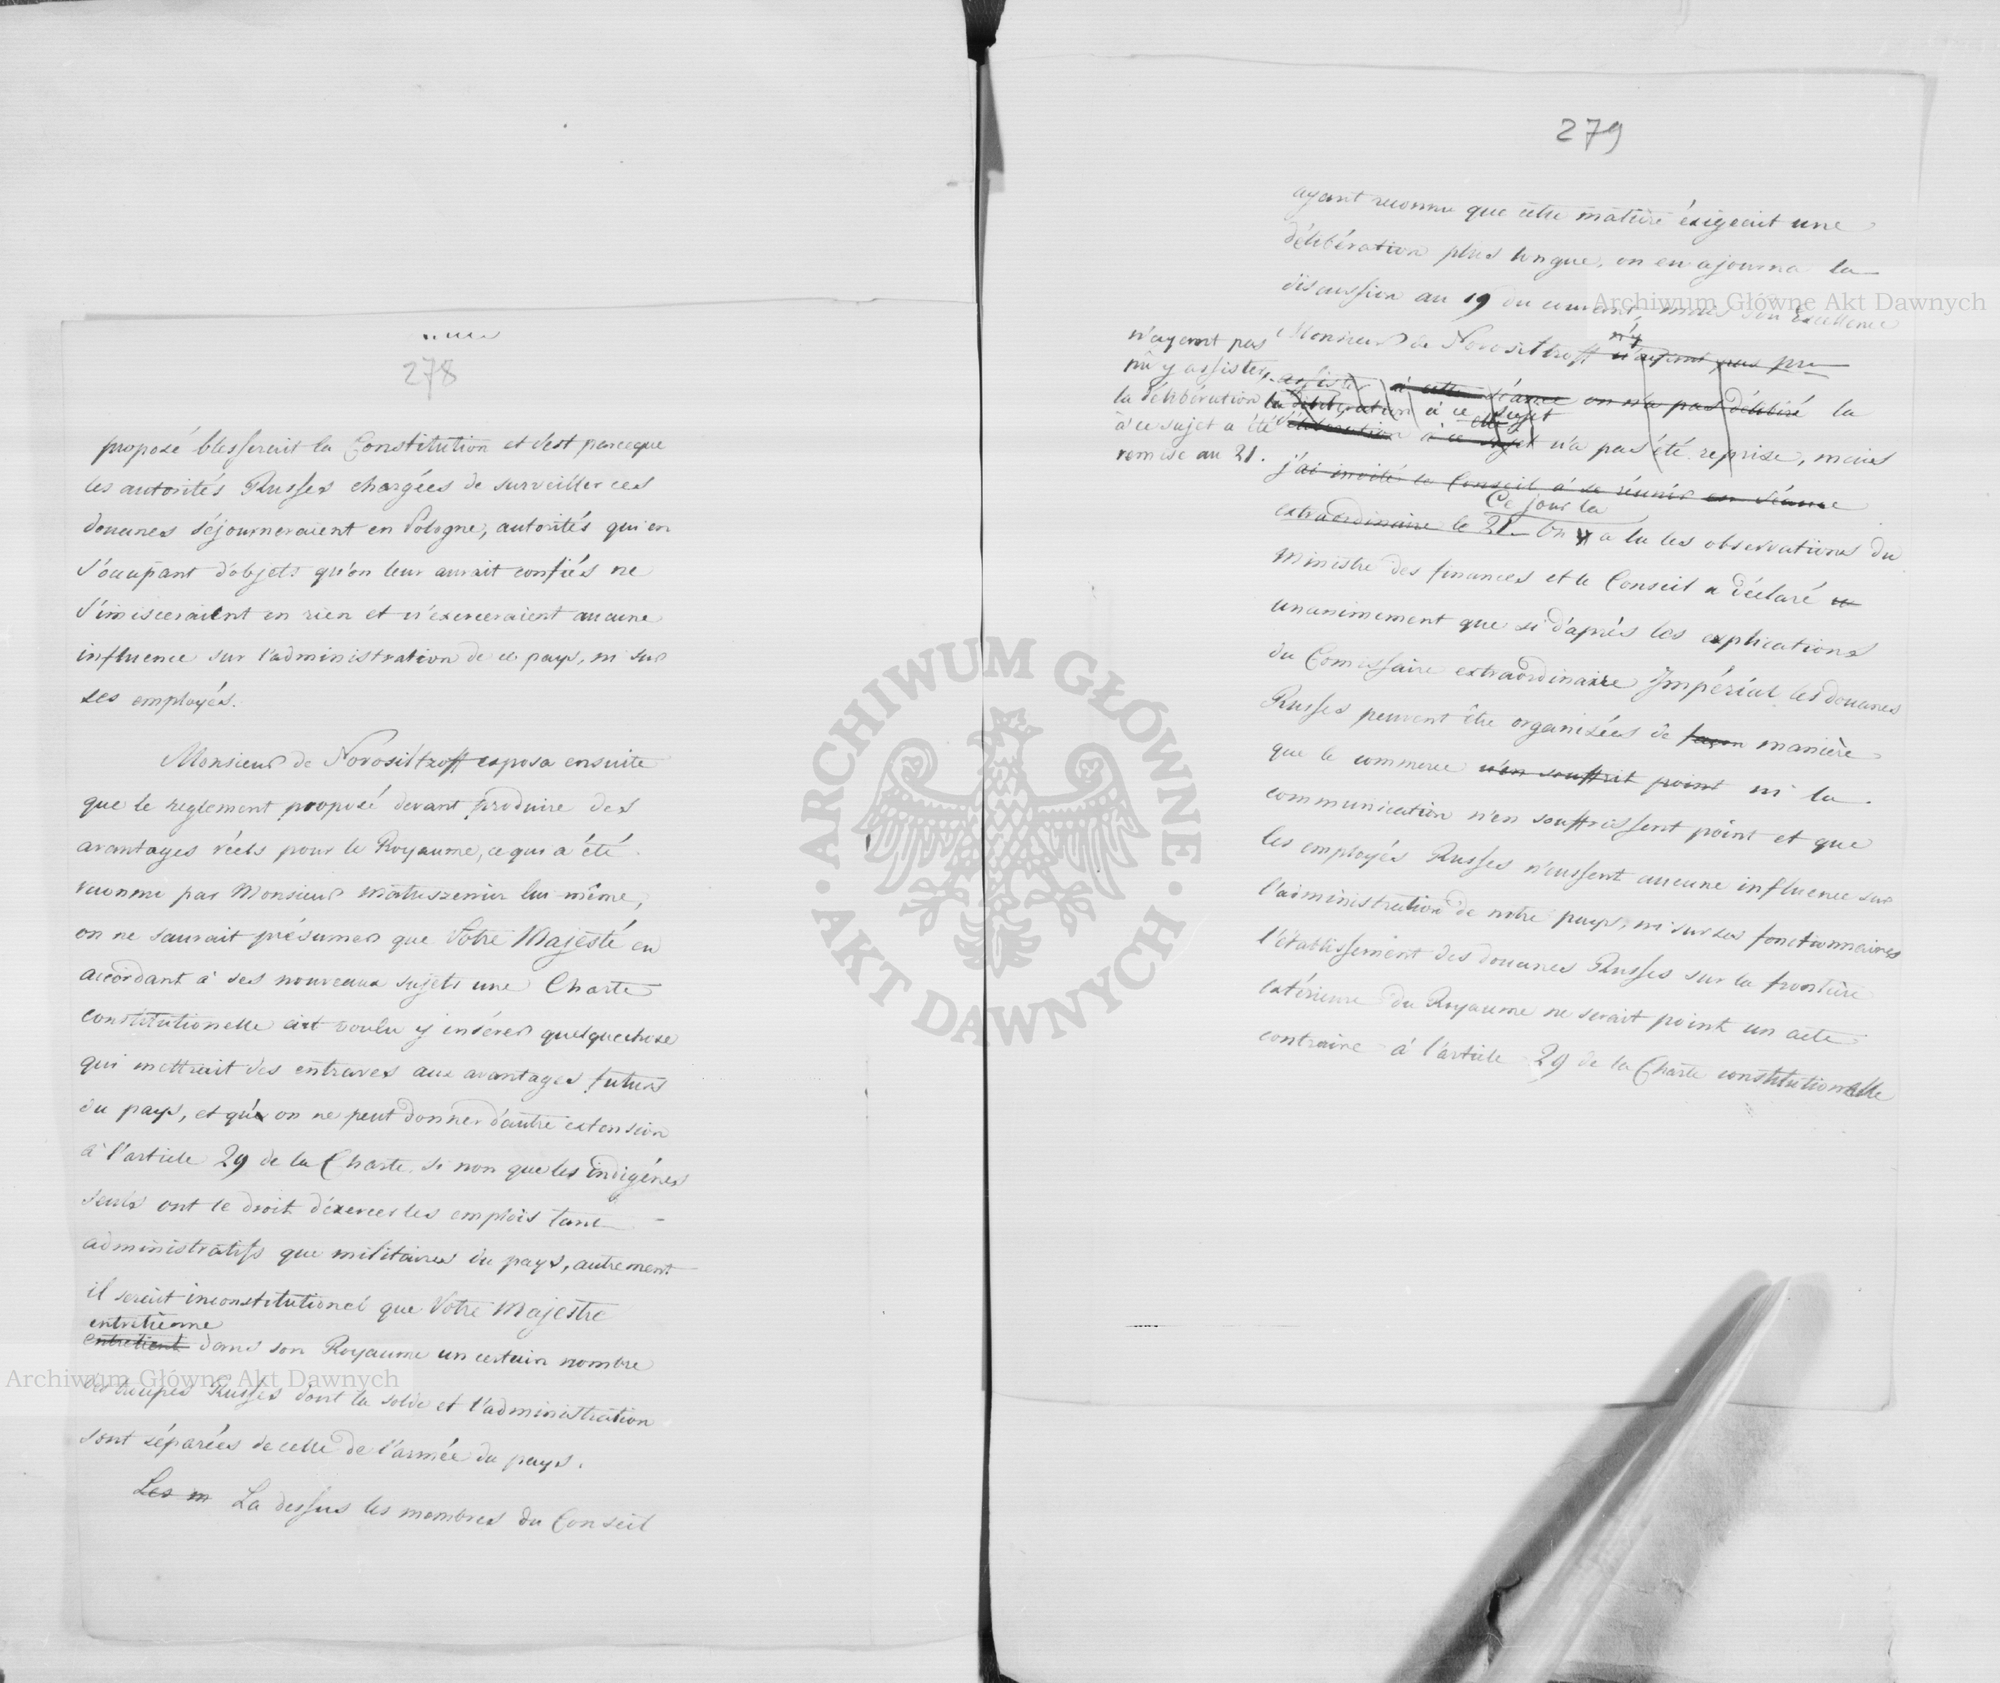 278
proposé blesserait la Constitution et c'est parceque
les autorités Russes chargées de surveiller ces
douanes séjourneraient en Pologne, autorités qui en
s'occupant d'objets qu'on leur aurait confiés ne
s'imisceraient en rien et n'exerceraient aucune
influence sur l'administration de ce pays, ni sur
ses employés.
Monsieur de Novosiltzoff exposa ensuite
que le reglement proposé devant produire des
avantages réels pour le Royaume, ce qui a été
reconnu par Monsieur Matuszewicz lui même,
on ne saurait présumer que Votre Majesté en
accordant à ses nouveaux sujets une Charte
constitutionelle ait voulu y insérer quelquechose
qui mettrait des entraves aux avantages futurs
du pays, et qu'on ne peut donner d'autre extension
à l'article 29 de la Charte si non que les indigénes
seuls ont le droit d'éxercer les emplois tant
administratifs que militaires du pays, autrement
il serait inconstitutionel que Votre Majestre
entretienne
entretient dans son Royaume un certain nombre
des troupes Russes dont la solde et l'administration
sont séparées de celle de l'armée du pays.
Les m La dessus les membres du Conseil
279
ayant reconnu que cette matière éxigeait une
délibération plus longue, on en ajourna la
discussion au 19 du courant, mais son Excellence
Monsieur de Novosiltzoff n'ayant pas pu
n'y
assister à cette séance on n'a pas délibéré la
la délibération à ce sujet
délibération à ce sujet elle n'a pas été reprise, mais
n'ayant pas
pû y assister,
la délibération
à ce sujet a été
remise au 21.
j'ai invité le Conseil à se réunir en séance
extraordinaire le 21. Ce jour la
On y a lu les observations du
Ministre des finances et le Conseil a déclaré
unanimement que si d'après les explications
du Comissaire extraordinaire Impérial les douanes
Russes peuvent être organisées de façon manière
que le commerce n'en souffrit point ni la
communication n'en souffrissent point et que
les employés Russes n'eussent aucune influence sur
l'administration de notre pays, ni sur ses fonctionnaires
l'établissement des douanes Russes sur la frontière
extérieure du Royaume ne serait point un acte
contraire à l'article 29 de la Charte constitutionelle
ARCHIWUM GŁÓWNE AKT DAWNYCH
Archiwum Główne Akt Dawnych
Archiwum Główne Akt Dawnych